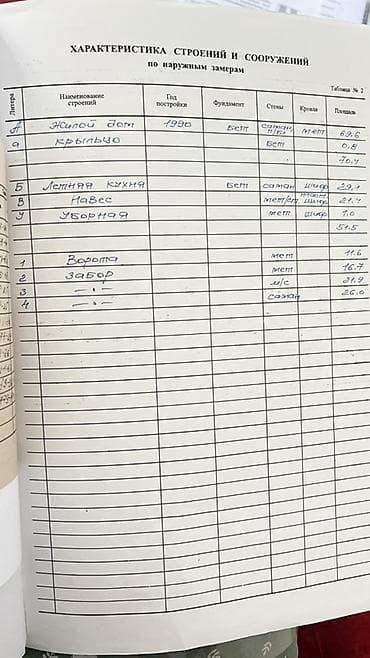 ХАРАКТЕРИСТИКА СТРОЕНИЙ И СООРУЖЕНИЙ
по наружным замерам
Таблица № 2
Литера Наименование строений Год постройки Фундамент Стены Кровля Площадь
А Жилой дом 1990 бет саман, п/б мет 69.6
а крыльцо бет 0.8
70.4
Б Летняя кухня бет саман шиф 29.1
В Навес мет/ст шиф 21.4
У Уборная мет шиф 1.0
51.5
1 Ворота мет 11.6
2 Забор мет 16.7
3 —"— м/с 21.9
4 —"— саман 26.0